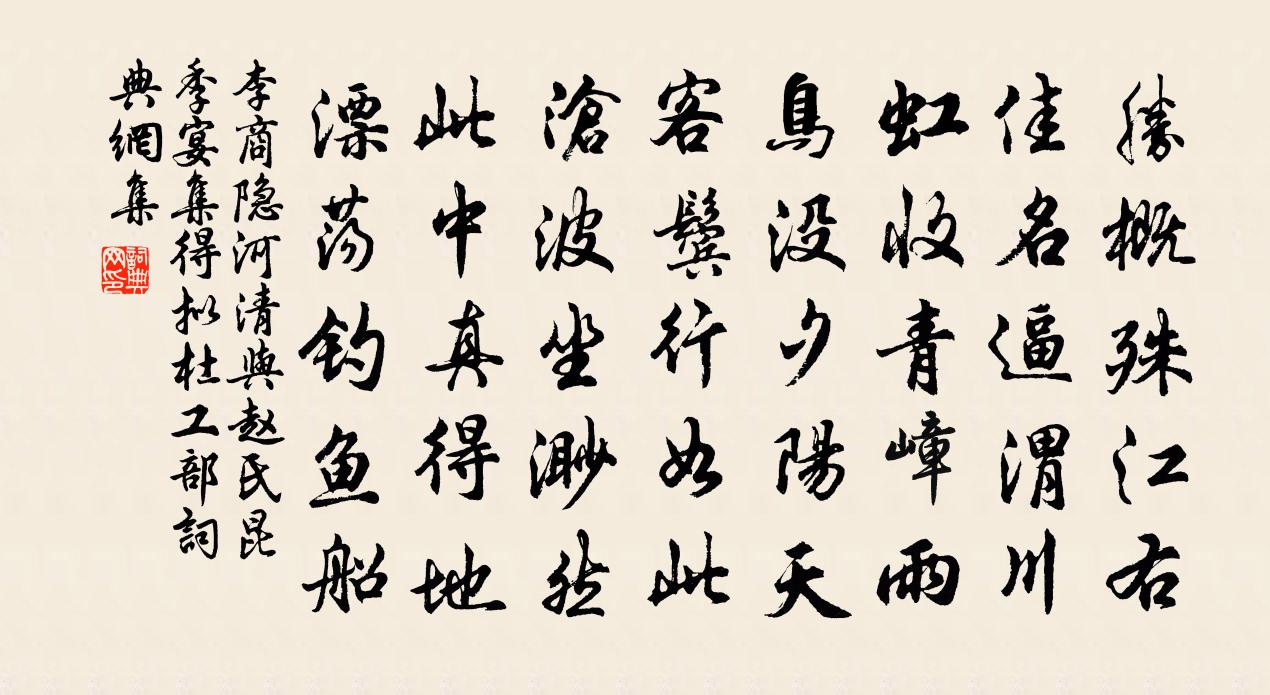 勝概殊江右
佳名逼渭川
虹收青嶂雨
鳥没夕陽天
客鬢行如此
滄波坐渺然
此中真得地
漂荡釣鱼船
李商隐河清與赵氏昆
季宴集得拟杜工部詞
典網集
詞典
网印